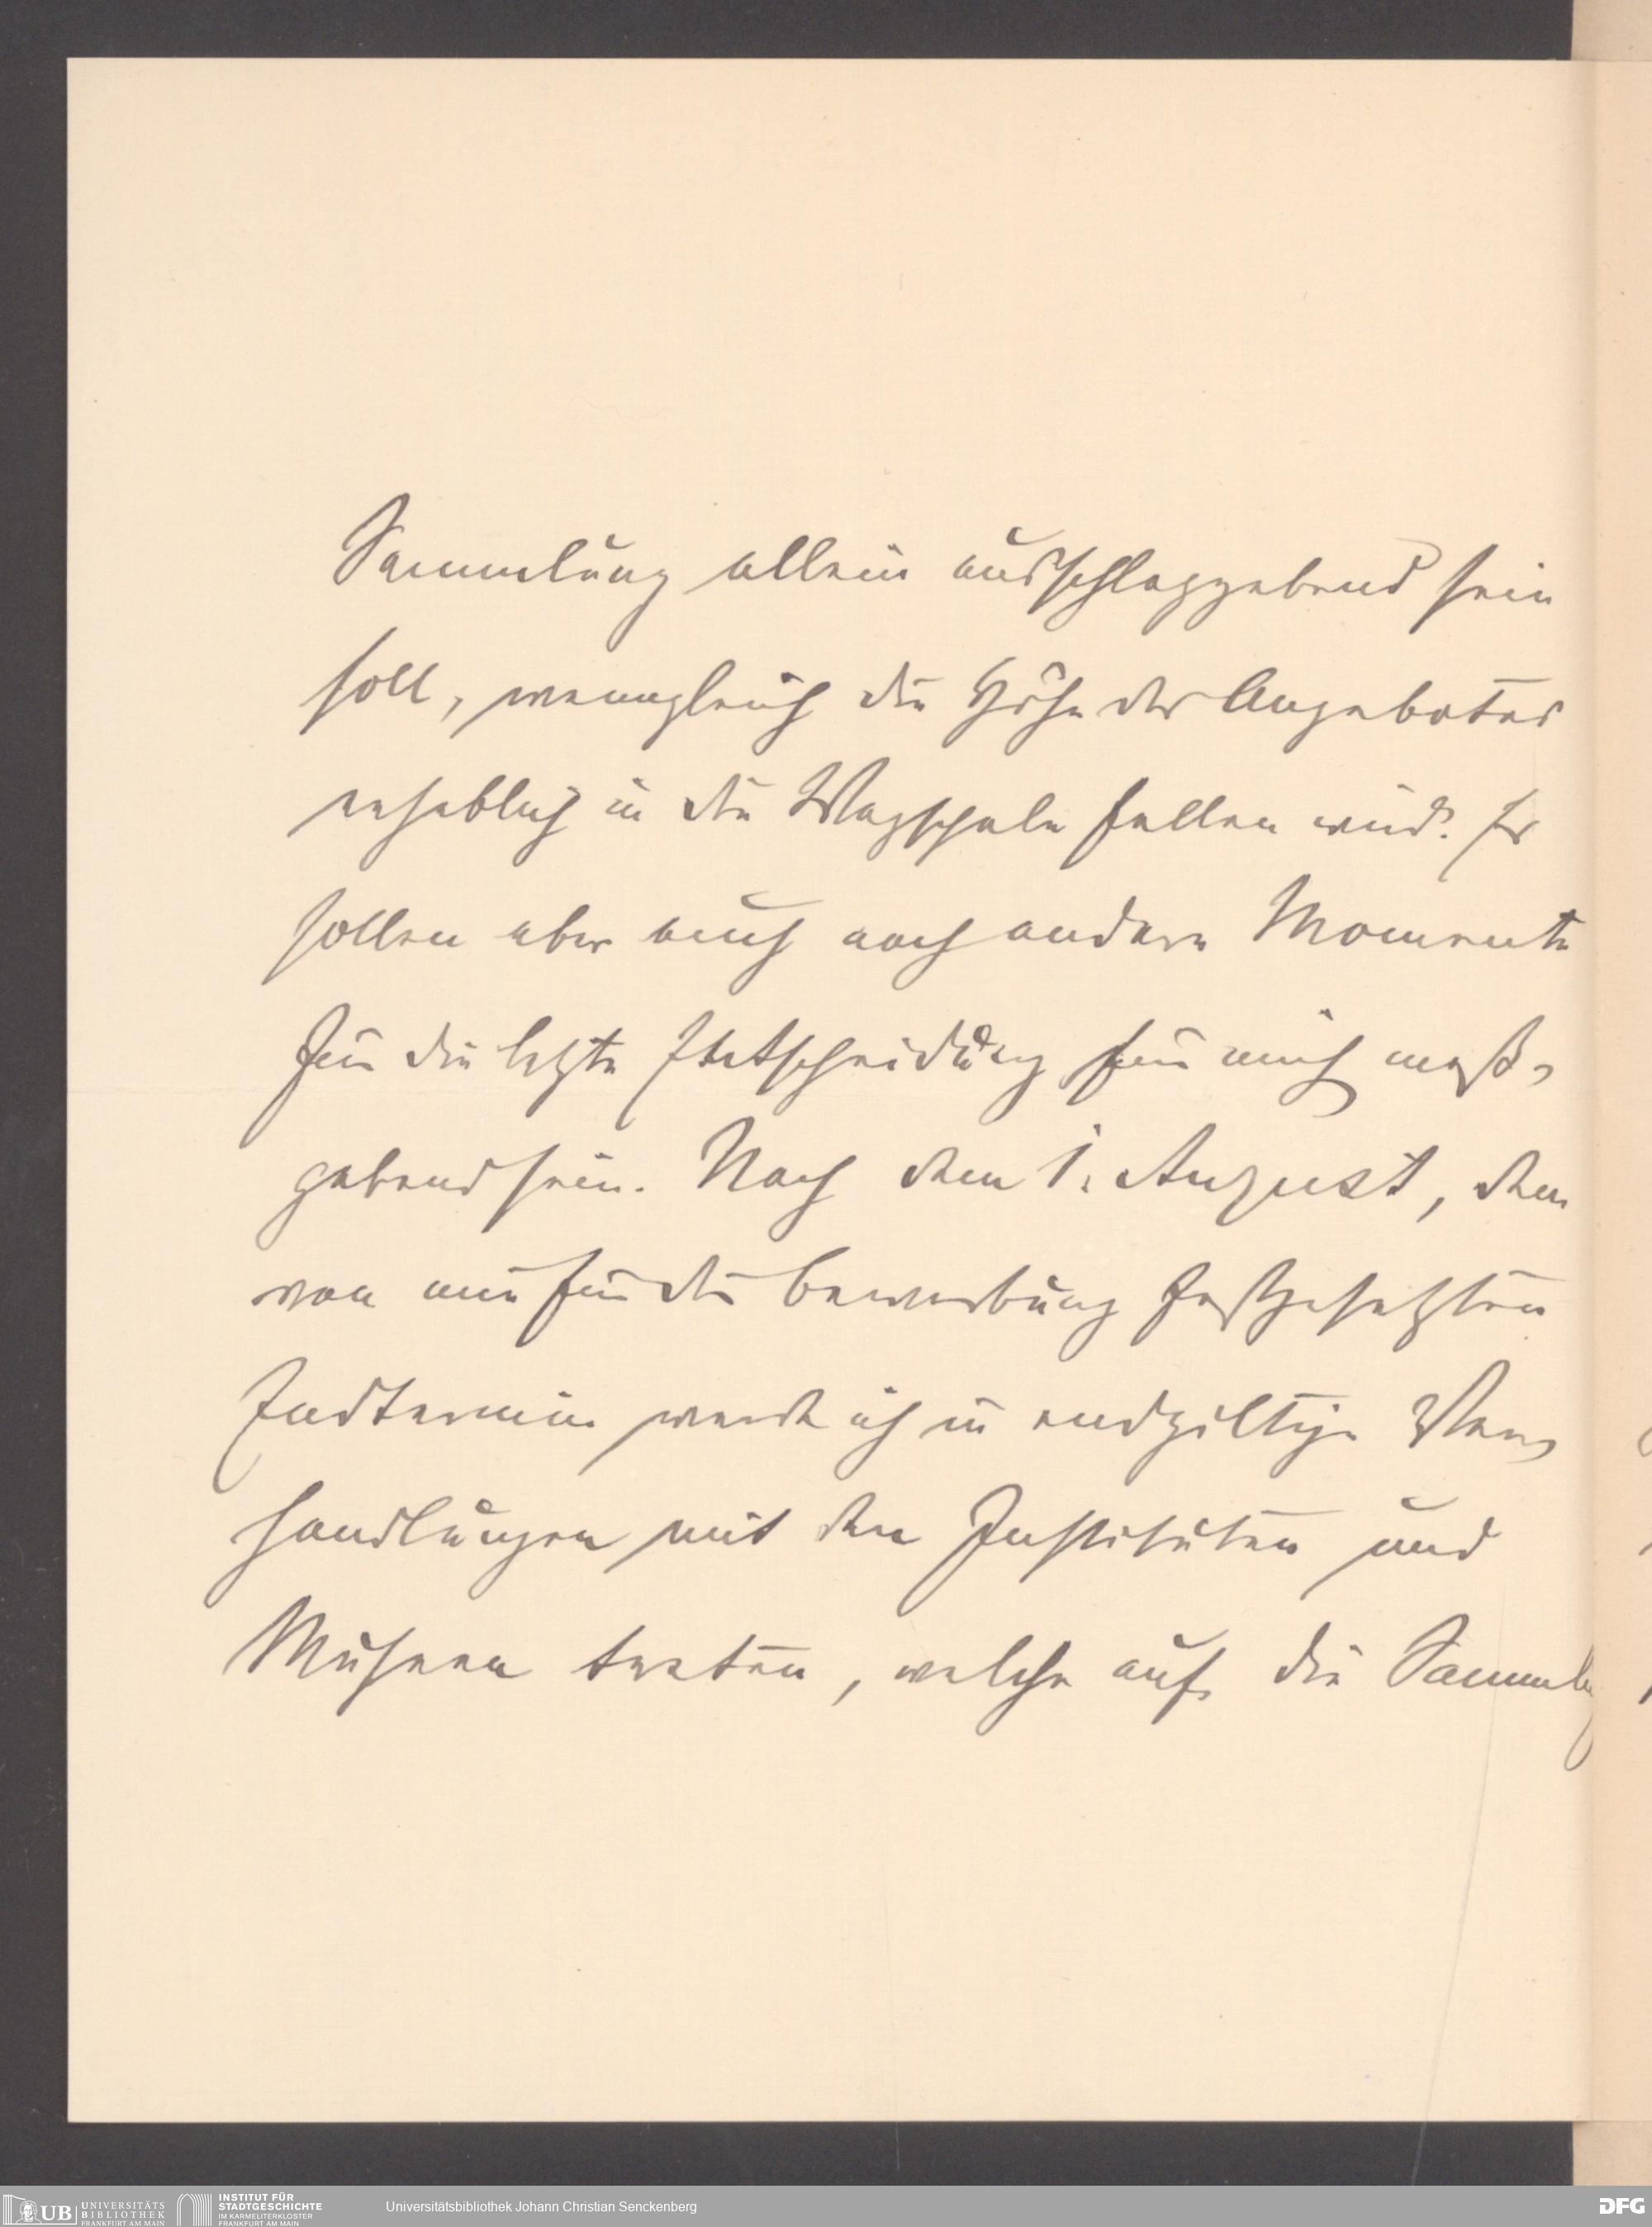 Sammlung allein ausschlaggebend sein
soll, wenngleich die Höhe des Angebotes
erheblich in die Wagschale fallen wird. Es
sollen aber auch noch andere Momente
für die letzte Entscheidung für mich maß-
gebend sein. Nach dem 1. August, dem
von mir für die Bewerbung festgesetzten
Endtermin werde ich in endgiltige Ver-
handlungen mit den Instituten und
Museen treten, welche auf die Sammlg
UB UNIVERSITÄTS BIBLIOTHEK FRANKFURT AM MAIN
INSTITUT FÜR STADTGESCHICHTE IM KARMELITERKLOSTER FRANKFURT AM MAIN
Universitätsbibliothek Johann Christian Senckenberg
DFG